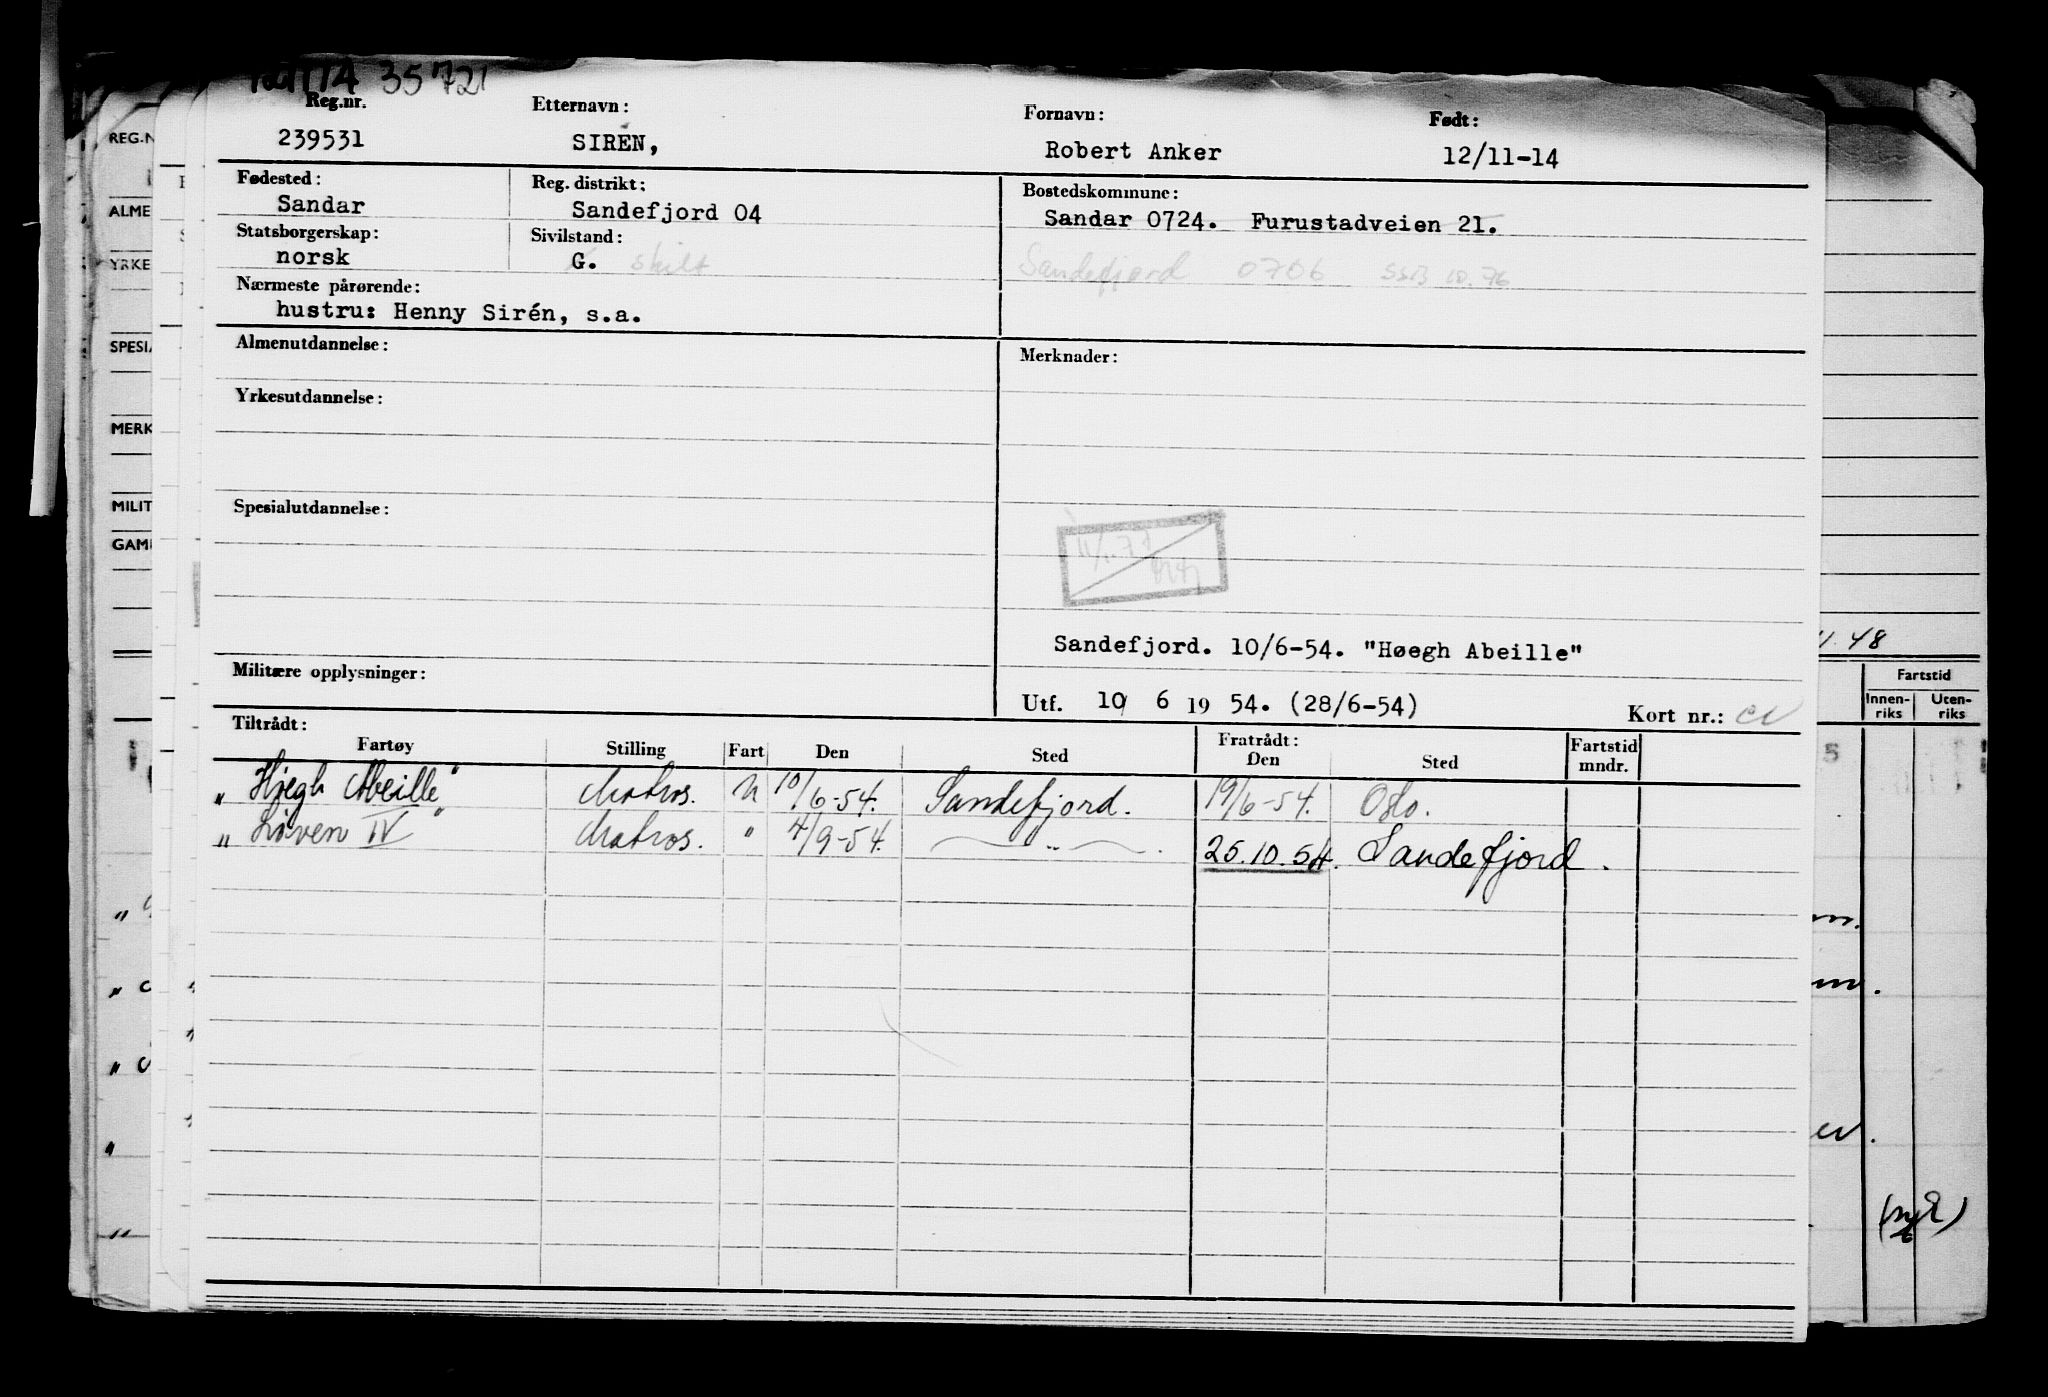 35721
Reg.nr. Etternavn: Fornavn: Født:
239531 SIRÉN, Robert Anker 12/11-14
Fødested: Reg. distrikt: Bostedskommune:
Sandar Sandefjord 04 Sandar 0724. Furustadveien 21.
Statsborgerskap: Sivilstand:
norsk G. skilt Sandefjord 0706 SSB 10.76
Nærmeste pårørende:
hustru: Henny Sirén, s.a.
Almenutdannelse: Merknader:
Yrkesutdannelse:
Spesialutdannelse:
Sandefjord. 10/6-54. "Høegh Abeille"
Militære opplysninger:
Utf. 10/ 6 19 54. (28/6-54) Kort nr.:
Tiltrådt: Fratrådt:
Fartøy Stilling Fart Den Sted Den Sted Fartstid mndr.
"Høegh Abeille" Matros. U 10/6-54. Sandefjord. 19/6-54. Oslo.
"Løven IV" Matros. " 4/9-54. — " — . 25.10.54. Sandefjord.
REG.N
ALME
YRKE
SPESIA
MERK
MILIT
GAMI
48
Fartstid
Innen-riks Uten-riks